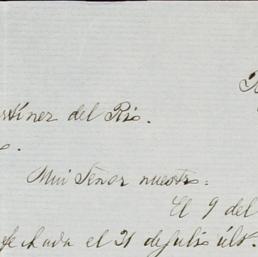 del Rio.
Mui Señor nuestro:
El 9 del
fechada el 21 de Julio últº.